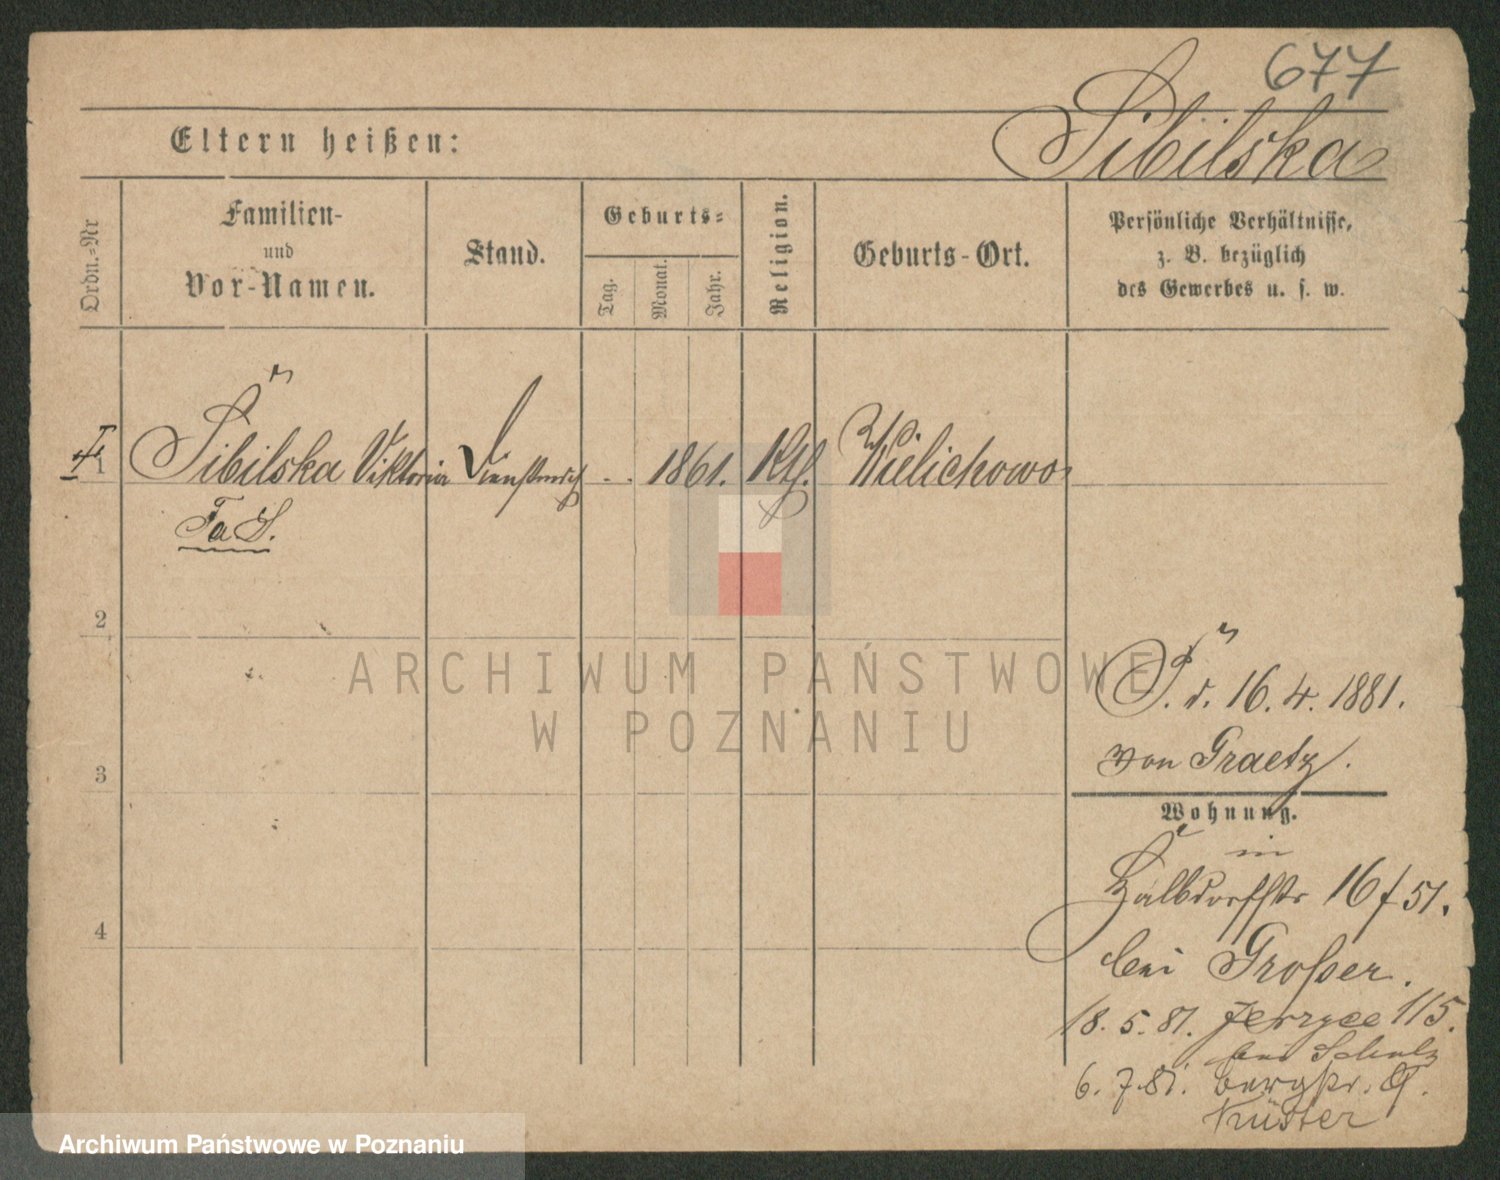 677
Sibilska
Eltern heißen:
Ordn.-Nr
Familien-
und
Vor-Namen.
Stand.
Geburts-
Tag.
Monat.
Jahr.
Religion.
Geburts-Ort.
Persönliche Verhältnisse,
z. B. bezüglich
des Gewerbes u. s. w.
1 Sibilska Viktoria . . 1861. Kth. Wielichowo
2
3
4
16. 4. 1881.
von Graetz.
Wohnung.
in
Halbdorfstr 16 / 51.
bei Großer.
18. 5. 81. Jerzyce 115.
bei Schulz
6. 7. 81. Bergstr. 9.
Küster
ARCHIWUM PAŃSTWOWE
W POZNANIU
Archiwum Państwowe w Poznaniu